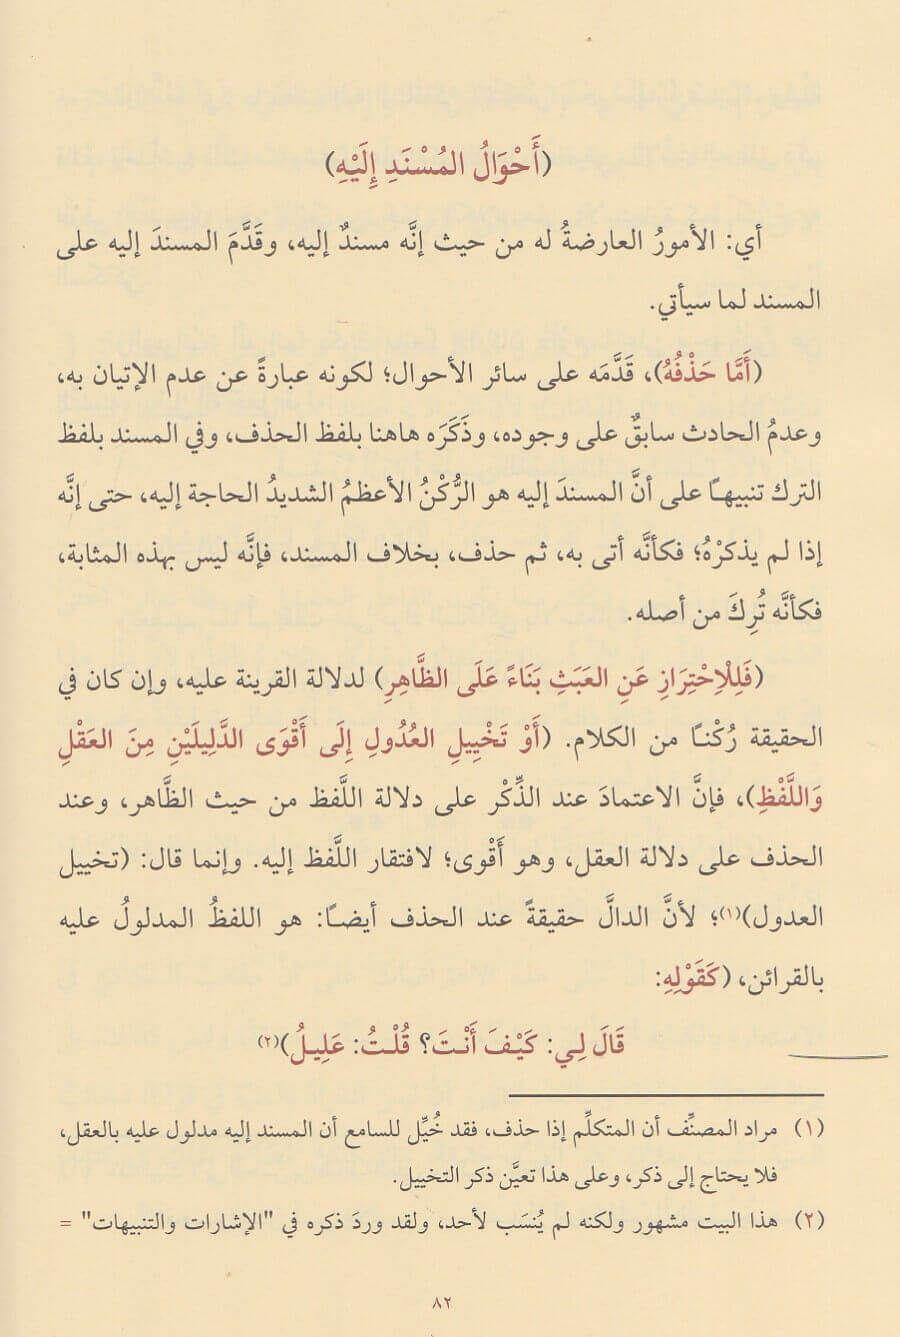 (أَحْوَالُ المُسْنَدِ إِلَيْهِ)
أي: الأمورُ العارضةُ له من حيث إنَّه مسندٌ إليه، وقَدَّمَ المسندَ إليه على
المسند لما سيأتي.
(أَمَّا حَذْفُهُ)، قَدَّمَه على سائر الأحوال؛ لكونه عبارةً عن عدم الإتيان به،
وعدمُ الحادث سابقٌ على وجوده، وذَكَرَه هاهنا بلفظ الحذف، وفي المسند بلفظ
الترك تنبيهًا على أنَّ المسندَ إليه هو الرُّكْنُ الأعظمُ الشديدُ الحاجة إليه، حتى إنَّه
إذا لم يذكرْهُ؛ فكأنَّه أتى به، ثم حذف، بخلاف المسند، فإنَّه ليس بهذه المثابة،
فكأنَّه تُرِكَ من أصله.
(فَلِلْاِحْتِرَازِ عَنِ العَبَثِ بَنَاءً عَلَى الظَّاهِرِ) لدلالة القرينة عليه، وإن كان في
الحقيقة رُكْنًا من الكلام. (أَوْ تَخْيِيلِ العُدُولِ إِلَى أَقْوَى الدَّلِيلَيْنِ مِنَ العَقْلِ
وَاللَّفْظِ)، فإنَّ الاعتمادَ عند الذِّكْر على دلالة اللَّفظ من حيث الظَّاهر، وعند
الحذف على دلالة العقل، وهو أَقْوى؛ لافتقار اللَّفظ إليه. وإنما قال: (تخييل
العدول)(١)؛ لأنَّ الدالَّ حقيقةً عند الحذف أيضًا: هو اللفظُ المدلولُ عليه
بالقرائن، (كَقَوْلِهِ:
قَالَ لِي: كَيْفَ أَنْتَ؟ قُلْتُ: عَلِيلُ)(٢)
(١) مراد المصنِّف أن المتكلِّم إذا حذف، فقد خُيِّل للسامع أن المسند إليه مدلول عليه بالعقل،
فلا يحتاج إلى ذكر، وعلى هذا تعيَّن ذكر التخييل.
(٢) هذا البيت مشهور ولكنه لم يُنسَب لأحد، ولقد وردَ ذكره في "الإشارات والتنبيهات" =
٨٢